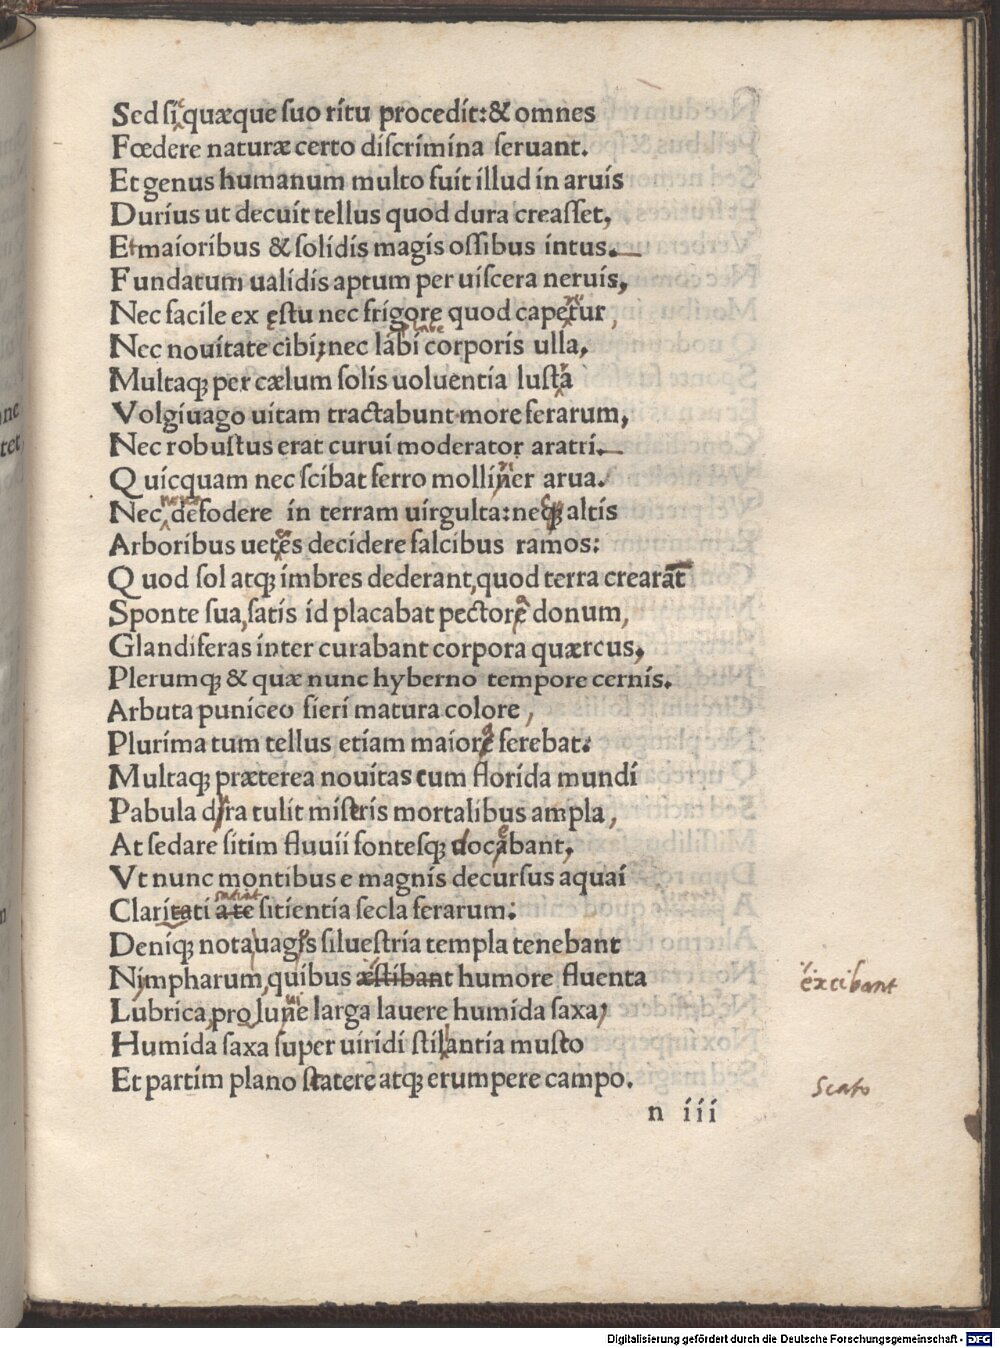 Sed sic quæque suo ritu procedit:& omnes
Fœdere naturæ certo discrimina seruant.
Et genus humanum multo fuit illud in aruis
Durius ut decuit tellus quod dura creasset,
Et maioribus & solidis magis ossibus intus.
Fundatum ualidis aptum per uiscera neruis,
Nec facile ex ęstu nec frigore quod caperetur,
ri
Nec nouitate cibi;nec labi corporis ulla,
labe
Multaqȝ per cælum solis uoluentia lusta
r
Volgiuago uitam tractabunt more ferarum,
Nec robustus erat curui moderator aratri.
Quicquam nec scibat ferro molliner arua.
ri
Nec defodere in terram uirgulta:neqȝ altis
noua
Arboribus ueteres decidere falcibus ramos:
Quod sol atqȝ imbres dederant,quod terra crearat
Sponte sua,satis id placabat pectore donum,
a
Glandiferas inter curabant corpora quærcus,
Plerumqȝ & quæ nunc hyberno tempore cernis.
Arbuta puniceo fieri matura colore,
Plurima tum tellus etiam maiore ferebat:
a
Multaqȝ præterea nouitas tum florida mundi
Pabula dira tulit miseris mortalibus ampla,
At sedare sitim fluuii fontesqȝ uocabant,
Vt nunc montibus e magnis decursus aquai
Claritati a te sitientia secla ferarum:
Deniqȝ nota uagis siluestria templa tenebant
Nimpharum,quibus æstibant humore fluenta
excibant
Lubrica,proluuie larga lauere humida saxa,
Humida saxa super uiridi stilantia musto
Et partim plano statere atqȝ erumpere campo.
scato
n iii
ne
tet
Digitalisierung gefördert durch die Deutsche Forschungsgemeinschaft - DFG